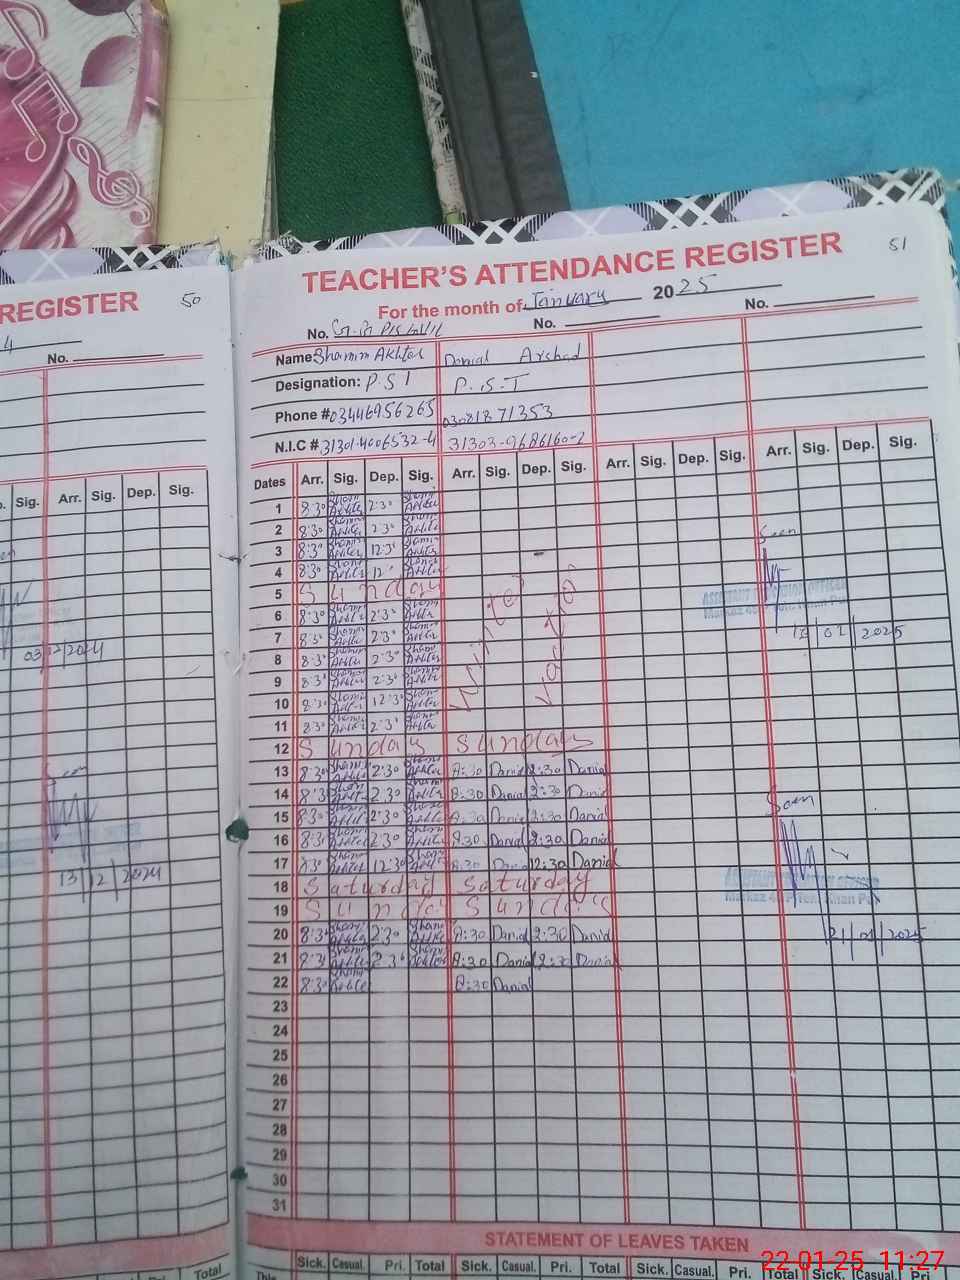 REGISTER 50
4
No.
Sig. Arr. Sig. Dep. Sig.
03/12/2024
Seen
13/12/2024
Total
51
TEACHER'S ATTENDANCE REGISTER
For the month of January 2025
No. No. No.
Name: Shamim Akhter Danial Arshad
Designation: P.S.T P.S.T
Phone # 03446956265 03081871353
N.I.C # 31301-4006532-4 31303-9686160-
Dates Arr. Sig. Dep. Sig. Arr. Sig. Dep. Sig. Arr. Sig. Dep. Sig. Arr. Sig. Dep. Sig.
1 8:30 Shamim Akhter 2:30 Shamim Akhter
2 8:30 Shamim Akhter 2:30 Shamim Akhter
3 8:30 Shamim Akhter 12:30 Shamim Akhter
4 8:30 Shamim Akhter Shamim Akhter
5 Sunday
6 8:30 Shamim Akhter 2:30 Shamim Akhter
7 8:30 Shamim Akhter 2:30 Shamim Akhter
8 8:30 Shamim Akhter 2:30 Shamim Akhter
9 8:30 Shamim Akhter 2:30 Shamim Akhter
10 8:30 Shamim Akhter 12:30 Shamim Akhter
11 8:30 Shamim Akhter 2:30 Shamim Akhter
Winter
Vacation
Seen
ASSISTANT EDUCATION OFFICER
Markaz
/2025
12 Sunday Sunday
13 8:30 Shamim Akhter 2:30 Shamim Akhter 8:30 Danial 2:30 Danial
14 8:30 Shamim Akhter 2:30 Shamim Akhter 8:30 Danial 2:30 Danial
15 8:30 Shamim Akhter 2:30 Shamim Akhter 8:30 Danial 2:30 Danial
16 8:30 Shamim Akhter 2:30 Shamim Akhter 8:30 Danial 2:30 Danial
17 8:30 Shamim Akhter 12:30 Shamim Akhter 8:30 Danial 12:30 Danial
18 Saturday Saturday
19 Sunday Sunday
20 8:30 Shamim Akhter 2:30 Shamim Akhter 8:30 Danial 2:30 Danial
21 8:30 Shamim Akhter 2:30 Shamim Akhter 8:30 Danial 2:30 Danial
22 8:30 Shamim Akhter 8:30 Danial
Seen
ASSISTANT EDUCATION OFFICER
Markaz
21/01/2025
23
24
25
26
27
28
29
30
31
STATEMENT OF LEAVES TAKEN
This Sick. Casual. Pri. Total Sick. Casual. Pri. Total Sick. Casual. Pri. Total Sick. Casual. Pri.
22.01.25 11:27